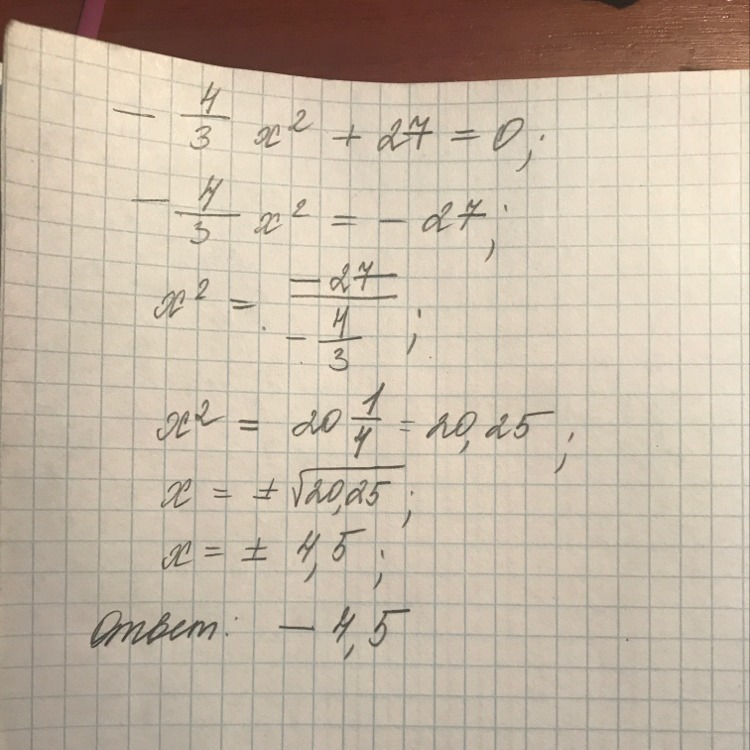 - 4/3 x² + 27 = 0;
- 4/3 x² = - 27;
x² = -27 / (- 4/3);
x² = 20 1/4 = 20,25;
x = ± √20,25;
x = ± 4,5;
Ответ: - 4,5